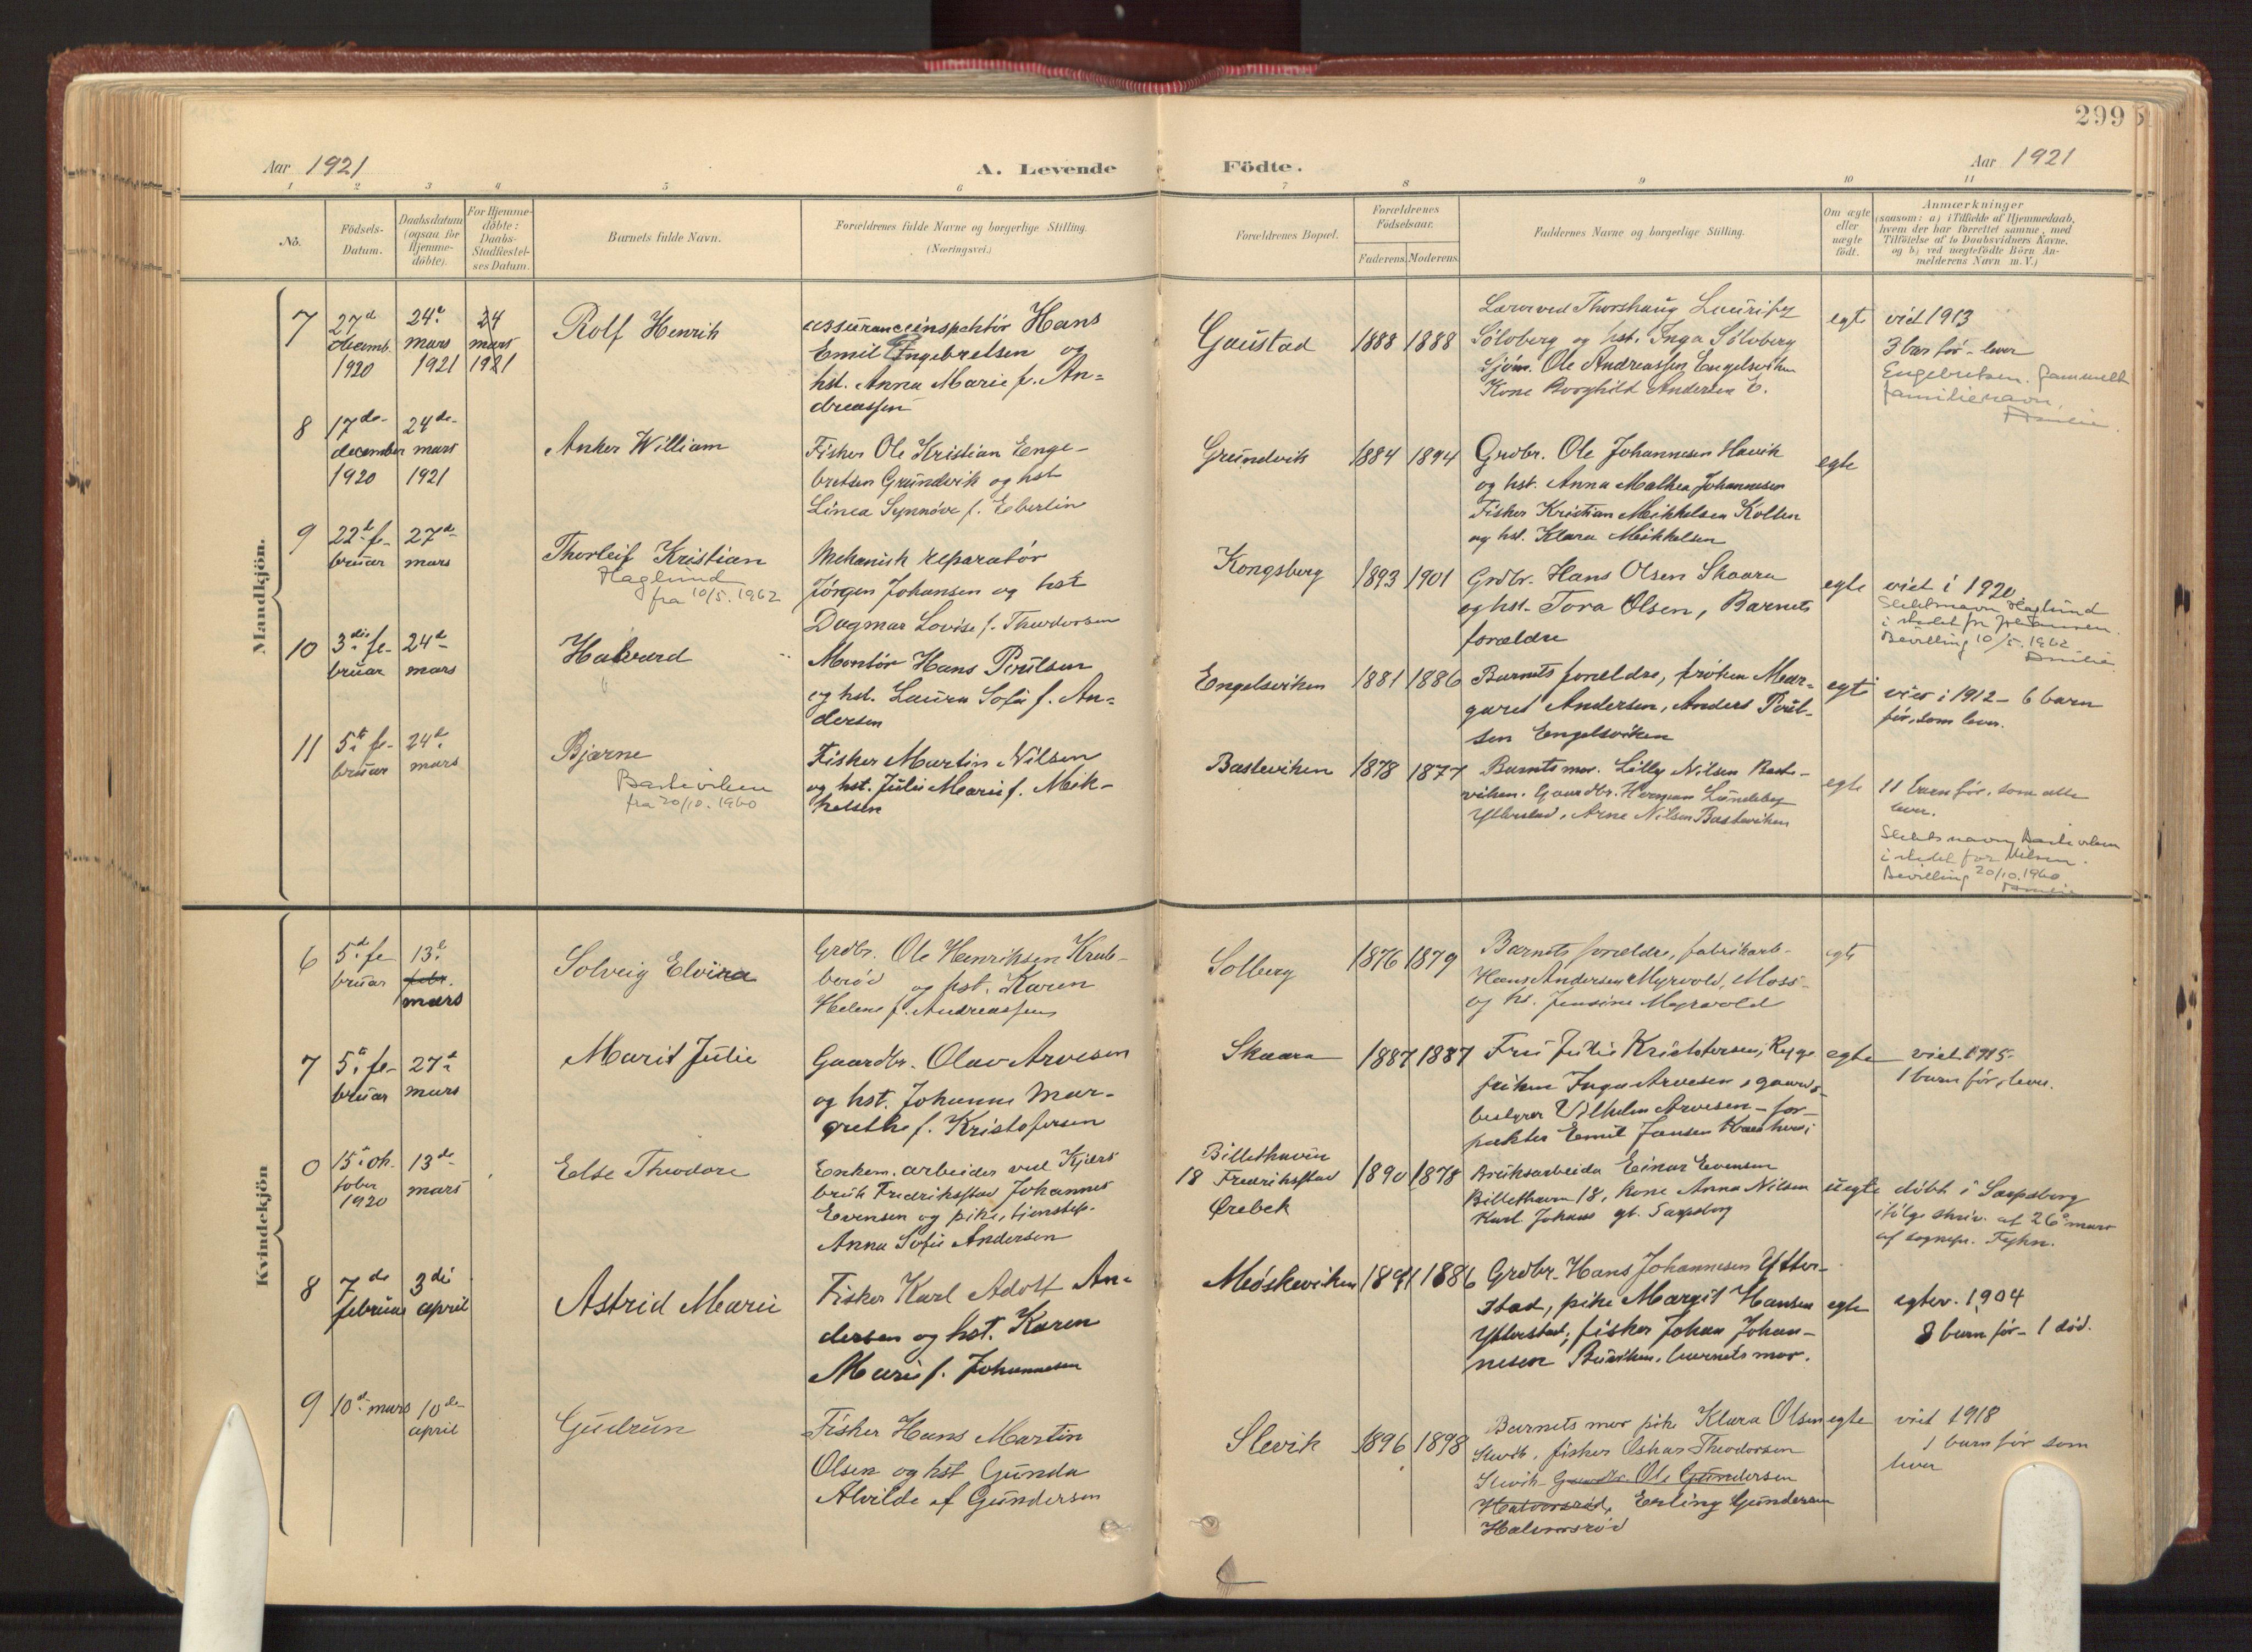 299
Aar 1921
A. Levende
Födte.
Aar 1921
1 2 3 4 5 6 7 8 9 10 11
No.
Födsels-
Datum.
Daabsdatum
(ogsaa for
Hjemme-
döbte).
For Hjemme-
döbte:
Daabs-
Stadfæstel-
ses Datum.
Barnets fulde Navn.
Forældrenes fulde Navne og borgerlige Stilling.
(Næringsvei.)
Forældrenes Bopæl.
Forældrenes
Födselsaar.
Faderens. Moderens.
Faddernes Navne og borgerlige Stilling.
Om ægte
eller
uægte
födt.
Anmærkninger
(saasom: a) i Tilfælde af Hjemmedaab,
hvem der har forrettet samme, med
Tilföielse af to Daabsvidners Navne,
og b) ved uegtefödte Börn An-
melderens Navn m. V.)
Mandkjön.
7
27d
decemb.
1920
24e
mars
1921
24
mars
1921
Rolf Henrik
assuranceinspektør Hans
Emil Engebretsen og
hst. Anna Marie f. An-
dreassen
Gaustad
1888 1888
Lærer ved Thorshaug Lauritz
Sølvberg og hst. Inga Sølvberg
Sjøm. Ole Andreassen Engelsviken
Kone Borghild Andersen E.
egt
viet 1913
3 barn før - lever
Engebretsen. Gammelt
familienavn.
8
17de
december
1920
24de
mars
1921
Anker William
Fisker Ole Kristian Enge-
bretsen Grundvik og hst
Linea Synnøve f. Eberlin
Grundvik
1884 1894
Grdbr. Ole Johannesen Havik
og hst. Anna Mathea Johannesen
Fisker Kristian Mikkelsen Kollen
og hst. Klara Mikkelsen
egte
9
22d fe-
bruar
27d
mars
Thorleif Kristian
Haglund
fra 10/5. 1962
Mekanisk reparatør
Jørgen Johansen og hst
Dagmar Lovise f. Theodorsen
Kongsberg
1893 1901
Grdbr. Hans Olsen Skaara
og hst. Tora Olsen, Barnets
forældre
egte
viet i 1920
Slektsnavn Haglund
i stedet for Johansen.
Bevilling 10/5. 1962
10
3die fe-
bruar
24d
mars
Halvard
Montør Hans Poulsen
og hst. Laura Sofie f. An-
dersen
Engelsviken
1881 1886
Barnets forældre, frøken Mar-
garet Andersen, Anders Poul-
sen Engelsviken
egte
viet i 1912 - 6 barn
før, som lever.
11
5te fe-
bruar
24d
mars
Bjarne
Basteviken
fra 20/10. 1960
Fisker Martin Nilsen
og hst. Julie Marie f. Mik-
kelsen
Basteviken
1878 1877
Barnets mor. Lilly Nilsen Baste-
viken. Gaardbr. Herman Lundeby
Ytterstad, Arne Nilsen Basteviken
egte
11 barn før, som alle
lever.
Slektsnavn Basteviken
i stedet for Nilsen.
Bevilling 20/10. 1960
Kvindekjön
6
5d fe
bruar
13d
febr.
mars
Solveig Elvira
Grdbr. Ole Henriksen Krab-
berød og hst. Karen
Helene f. Andreassen
Solberg
1876 1879
Barnets forældre, fabrikarb-
Hans Andersen Myrvold, Moss
og hs. Jensine Myrvold
egte
7
5te fe-
bruar
27d
mars
Marit Julie
Gaardbr. Olav Arvesen
og hst. Johanne Mar-
grethe f. Kristofersen
Skaara
1887 1887
Fru Julie Kristofersen, Rygge
frøken Inga Arvesen, gaards-
bestyrer Vilhelm Arvesen - for-
pakter Emil Jansen
egte
viet 1915
1 barn før, lever.
0
15de ok-
tober
1920
13de
mars
Else Theodore
Enkem. arbeider ved Kjærs
bruk Fredriksstad Johannes
Evensen og pike, tjenestep.
Anna Sofie Andersen
Billethavn
18 Fredriksstad
Ørebek
1890 1878
Bruksarbeider Einar Evensen
Billethavn 18, kone Anna Nilsen
Karl Johans gt. Sarpsborg
uegte
døbt i Sarpsborg
ifølge skriv. af 26de mars
af sognepr. Tyhn.
8
7de
februar
3die
april
Astrid Marie
Fisker Karl Adolf An-
dersen og hst. Karen
Marie f. Johannesen
Møskeviken
1871 1886
Grdbr. Hans Johannesen Ytter-
stad, pike Margit Hansen
Ytterstad, fisker Johan Johan-
nesen Buviken, barnets mor.
egte
egtev. 1904
8 barn før - 1 død.
9
10d mars
10de
april
Gudrun
Fisker Hans Martin
Olsen og hst Gunda
Alvilde af Gundersen
Slevik
1896 1898
Barnets mor pike Klara Olsen
Slevik, fisker Oskar Theodorsen
Slevik Gaardbr. Ole Gundersen
Halvorsrød, Erling Gundersen
Halvorsrød
egte
viet 1918
1 barn før som
lever